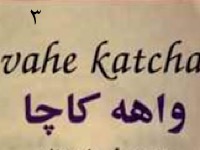 ۳
vahe katcha
واهه کاچا